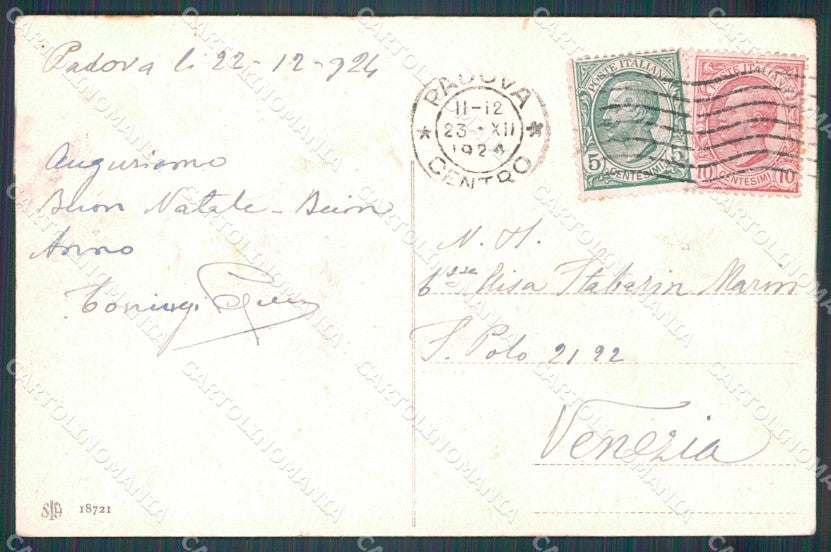 Padova li 22-12-924
Auguriamo
Buon Natale - Buon
Anno
PADOVA
11-12
23·XII
1924
CENTRO
POSTE ITALIANE
5 5
CENTESIMI
POSTE ITALIANE
10 10
CENTESIMI
N. H.
Elisa Marin
S. Polo 2122
Venezia
18721
CARTOLINOMANIA